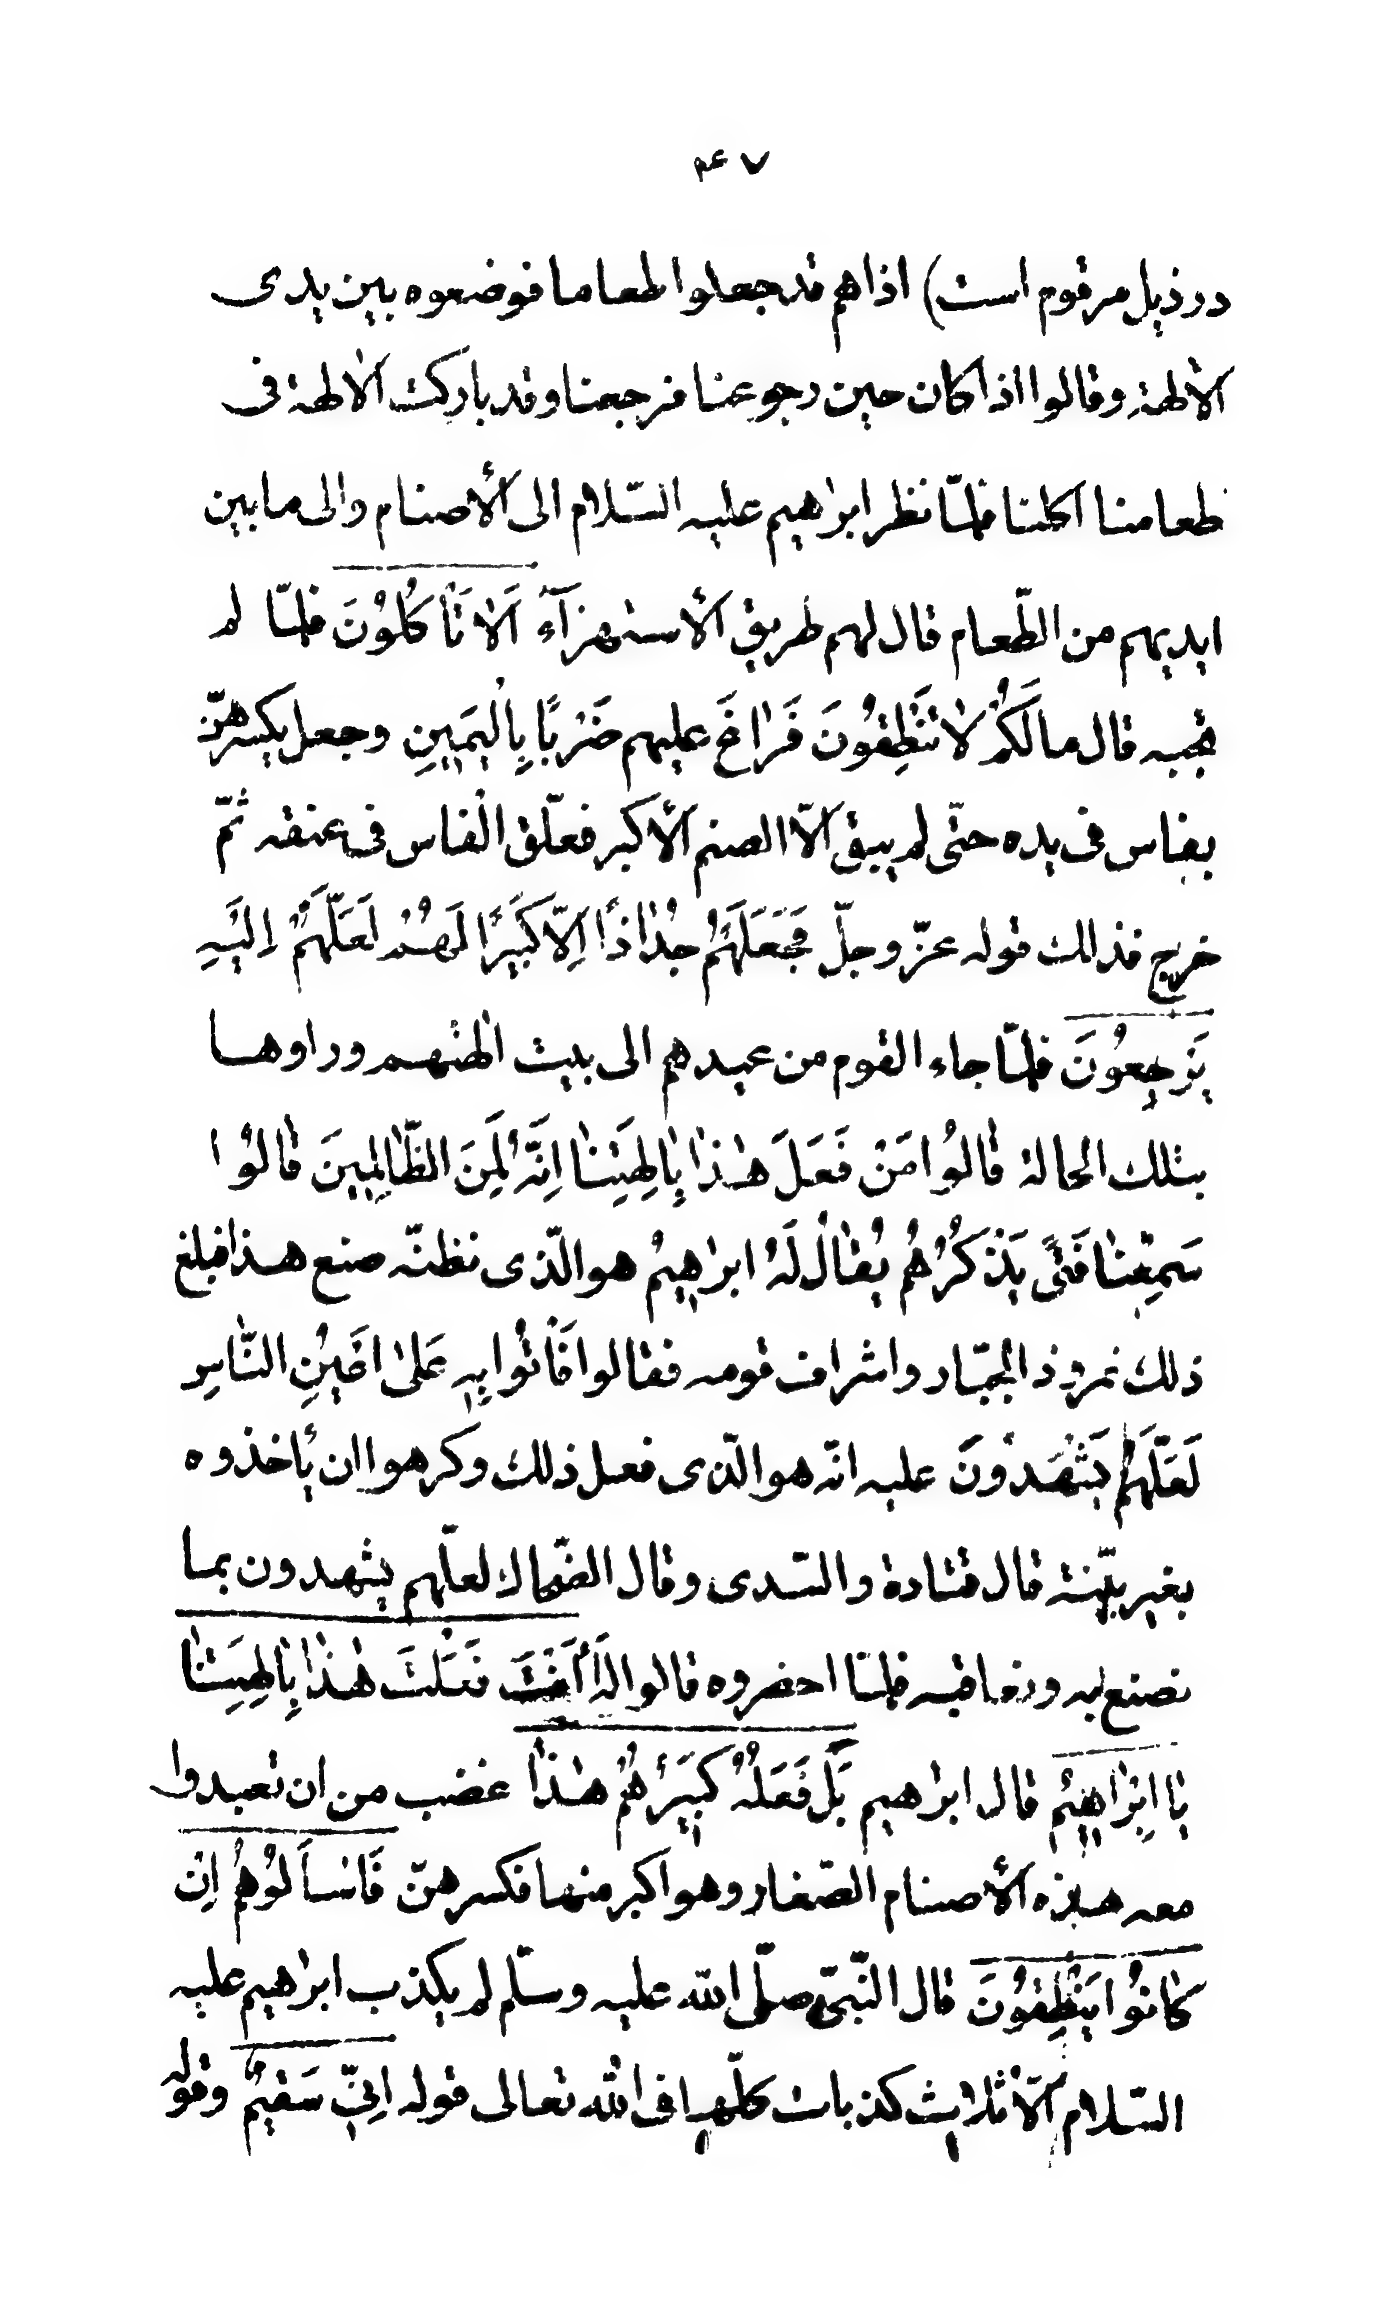 ۴۷
در ذیل مرقوم است) اذا هم قد جعلوا طعاما فوضعوه بین یدی
الألهة وقالوا اذا كان حین رجوعنا فرجعنا وقد باركت الالهة فی
طعامنا اكلنا فلمّا نظر ابرٰاهیم علیه السّلام الی الأصنام والی ما بین
ایدیهم من الطّعام قال لهم طریق الأستهزآء اَلاٰ تَأْكُلُوْنَ فلمّا لم
تجبه قال ما لَكُمْ لاٰ تَنْطِقُونَ فَرٰاغَ علیهم ضَرْبًا بِالْیَمٖینِ وجعل یكسرهنّ
بفاس فی یده حتّی لم یبق الّا الصنم الأكبر فعلّق الْفاس فی عنقه ثمّ
خرج فذالك قوله عزّ وجلّ فَجَعَلَهُمْ جُذٰاذًا اِلّاٰ كَبٖیرًا لَهُمْ لَعَلَّهُمْ اِلَیْهِ
یَرْجِعُونَ فلمّا جاء القوم من عیدهم الی بیت الهتهم وراوها
بتلك الحالة قٰالُوا مَنْ فَعَلَ هٰذٰا بِاٰلِهَتِنٰا اِنَّهُ لَمِنَ الظّٰالِمٖینَ قٰالُوا
سَمِعْنٰا فَتًی یَذْكُرُهُمْ یُقٰالُ لَهُ ابرٰاهٖیمُ هو الّذی نظنّه صنع هذا فبلغ
ذلك نمروذ الجبّار واشراف قومه فقالوا فَأْتُوا بِهٖ عَلیٰ اَعْیُنِ النّٰاسِ
لَعَلَّهُمْ یَشْهَدُونَ علیه انّه هو الّذی فعل ذلك وكرهوا ان یأخذوه
بغیر بیّنة قال قتادة والسّدی وقال الضّحاك لعلّهم یشهدون بما
نصنع به ونعاقبه فلمّا احضروه قالوا لَهُ أَأَنْتَ فَعَلْتَ هٰذٰا بِاٰلِهَتِنٰا
یٰا اِبْرٰاهٖیْمُ قال ابرٰهیم بَلْ فَعَلَهُ كَبٖیرُهُمْ هٰذٰا غضب من ان تعبدوا
معه هذه الأصنام الصّغار وهو اكبر منها فكسرهنّ فَاسْأَلُوهُمْ اِنْ
كٰانُوا یَنْطِقُونَ قال النّبیّ صلّی الله علیه وسلّم لم یكذب ابرٰهیم علیه
السّلام الّا ثلاث كذبات كلّها فی الله تعالی قوله اِنّٖی سَقٖیمٌ وقوله